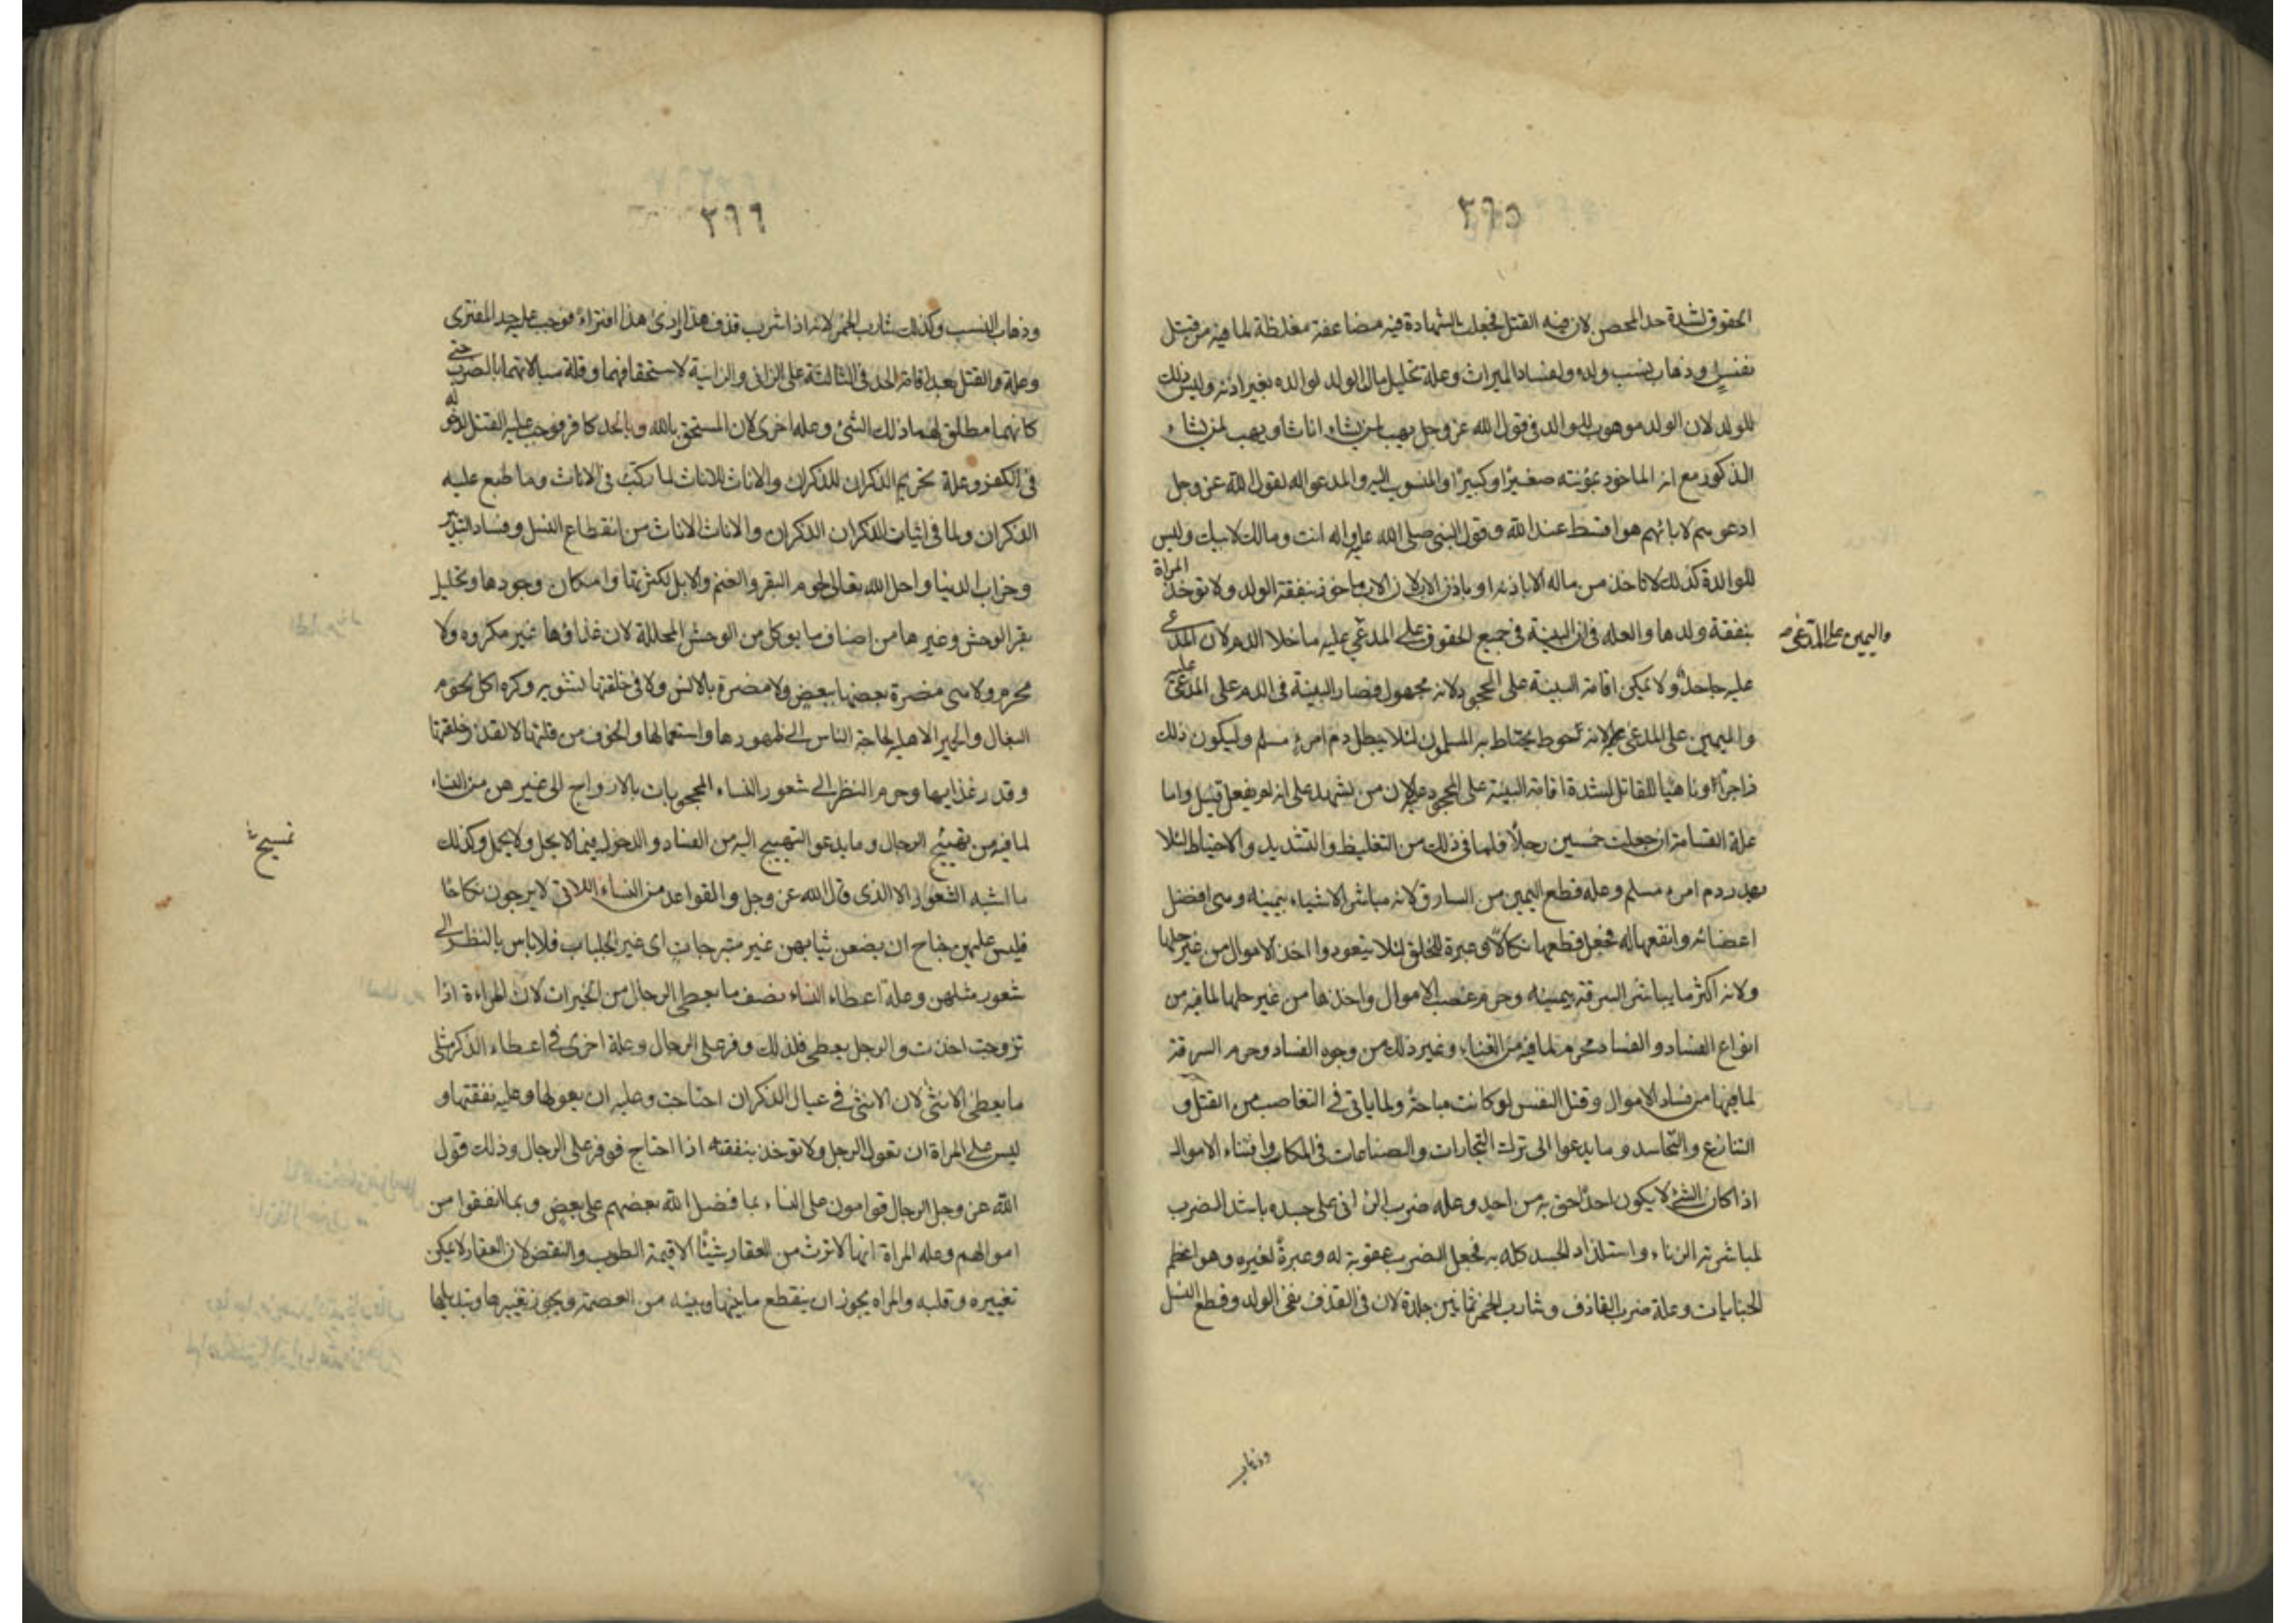 ٣٦٥
الحقوق لشدة حد المحصن لان فيه القتل فجعلت الشهادة فيه مضاعفة مغلظة لما فيه من قتل
نفس وذهاب نسب ولده ولفساد الميراث وعلة تحليل مال الولد لوالده بغير اذنه وليس ذلك
للولد لان الولد موهوب للوالد في قول الله عز وجل يهب لمن يشاء اناثا ويهب لمن يشاء
الذكور مع انه الماخوذ بمؤنته صغيرا وكبيرا والمنسوب اليه والمدعو له لقول الله عز وجل
ادعوهم لابائهم هو اقسط عند الله وقول النبي صلى الله عليه واله انت ومالك لابيك وليس
للوالدة كذلك لا تاخذ من ماله الا باذنه او باذن الاب لان الاب ماخوذ بنفقة الولد ولا توخذ المراة
بنفقة ولدها والعله في ان البينة في جميع الحقوق على المدعي عليه ما خلا الدم لان المدعى
واليمين على المدعى
عليه جاحد ولا يمكن اقامة البينة على الجحود لانه مجهول فصار البينة في الدم على المدعى عليه
واليمين على المدعى لانه حوط يحتاط به المسلمون لئلا يبطل دم امرء مسلم وليكون ذلك
زاجرا وناهيا للقاتل لشدة اقامة البينة على الجحود عليه لان من يشهد على انه لم يفعل قليل واما
علة القسامة ان جعلت خمسين رجلا فلما في ذلك من التغليظ والتشديد والاحتياط لئلا
يهدر دم امرء مسلم وعله قطع اليمين من السارق لانه مباشر الاشياء بيمينه وهي افضل
اعضائه وانفعها له فجعل قطعها نكالا وعبرة للخلق لئلا يتعودوا اخذ الاموال من غير حلها
ولانه اكثر ما يباشر السرقة بيمينه وحرم غصب الاموال واخذها من غير حلها لما فيه من
انواع الفساد والفساد محرم لما فيه من الفناء وغير ذلك من وجوه الفساد وحرم السرقة
لما فيها من فساد الاموال وقتل النفس لو كانت مباحة ولما ياتي في التغاصب من القتل و
التنازع والتحاسد وما يدعوا الى ترك التجارات والصناعات في المكاسب واقتناء الاموال
اذا كان الشئ لا يكون احد احق به من احد وعلة ضرب الزاني على جسده باشد الضرب
لمباشرته الزناء واستلذاذ الجسد كله به فجعل الضرب عقوبة له وعبرة لغيره وهو اعظم
الجنايات وعلة ضرب القاذف وشارب الخمر ثمانين جلدة لان في القذف نفى الولد وقطع النسل
وذهاب
٣٦٦
وذهاب النسب وكذلك شارب الخمر لانه اذا شرب هذى واذا هذى افترى فوجب عليه حد المفترى
وعلة والقتل بعد اقامة الحد في الثالثة على الزاني والزانية لاستحقاقهما وقلة مبالاتهما بالضرب حتى
كانهما مطلق لهما ذلك الشئ وعله اخرى لان المستخف بالله وبالحد كافر فوجب عليه القتل لدخوله
في الكفر وعلة تحريم الذكران للذكران والاناث للاناث لما ركب في الاناث وما طبع عليه
الذكران ولما في اتيان الذكران الذكران والاناث الاناث من انقطاع النسل وفساد التدبير
وخراب الدنيا واحل الله تعالى لحوم البقر والغنم والابل لكثرتها وامكان وجودها وتحليل
بقر الوحش وغيرها من اصناف ما يوكل من الوحش المحللة لان غذاؤها غير مكروه ولا
محرم ولا هي مضرة بعضها ببعض ولا مضرة بالانس ولا في خلقتها تشويه وكره اكل لحوم
البغال والحمير الاهلية لحاجة الناس الى ظهورها واستعمالها والخوف من قلتها لا لقذر خلقتها
وقذر غذايها وحرم النظر الى شعور النساء المحجوبات بالازواج الى غيرهن من النساء
لما فيه من تهييج الرجال وما يدعو التهييج اليه من الفساد والدخول فيما لا يحل ولا يجمل وكذلك
ما اشبه الشعور الا الذى قال الله عز وجل والقواعد من النساء اللاتي لا يرجون نكاحا
فليس عليهن جناح ان يضعن ثيابهن غير متبرجات اى غير الجلباب فلا باس بالنظر الى
شعور مثلهن وعلة اعطاء النساء نصف ما يعطى الرجال من الميراث لان المراءة اذا
تزوجت اخذت والرجل يعطى فلذلك وفر على الرجال وعلة اخرى في اعطاء الذكر مثلى
ما يعطى الانثى لان الانثى في عيال الذكران احتاجت وعليه ان يعولها وعليه نفقتها و
ليس على المراة ان تعول الرجل ولا توخذ بنفقته اذا احتاج فوفر على الرجال وذلك قول
الله عز وجل الرجال قوامون على النساء بما فضل الله بعضهم على بعض وبما انفقوا من
اموالهم وعله المراة انها لا ترث من العقار شيئا الا قيمة الطوب والنقض لان العقار لا يمكن
تغييره وقلبه والمراه يجوز ان ينقطع ما بينها وبينه من العصمة ويجوز تغييرها وتبديلها